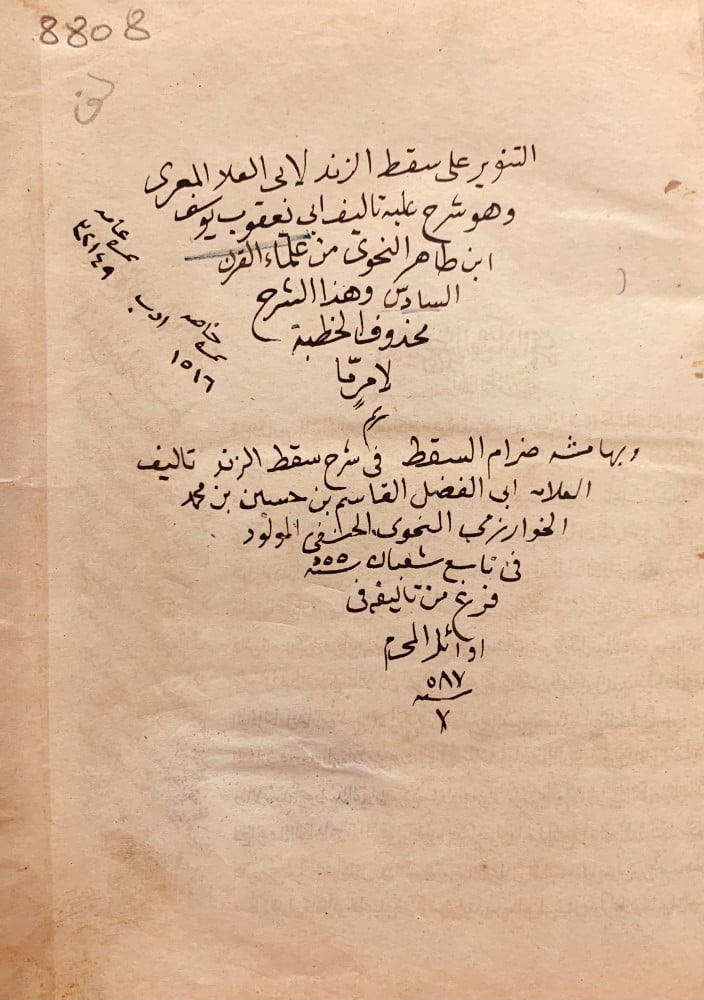 8808
التنوير على سقط الزند لابى العلا المعرى
وهو شرح عليه تاليف ابي يعقوب يوسف
ابن طاهر النحوى من علماء القرن
السادس وهذا الشرح
محذوف الخطبة
لامر مّا
وبهامشه ضرام السقط فى شرح سقط الزند تاليف
العلامه ابى الفضل القاسم بن حسين بن محمد
الخوارزمى النحوى الحنفى المولود
فى تاسع شعبان سنة ٥٥٥
فرغ من تاليفه فى
اوائل المحرم
سنة ٥٨٧
٧
عامه
٣٢١٤٩
خاصه ادب
١٥١٦